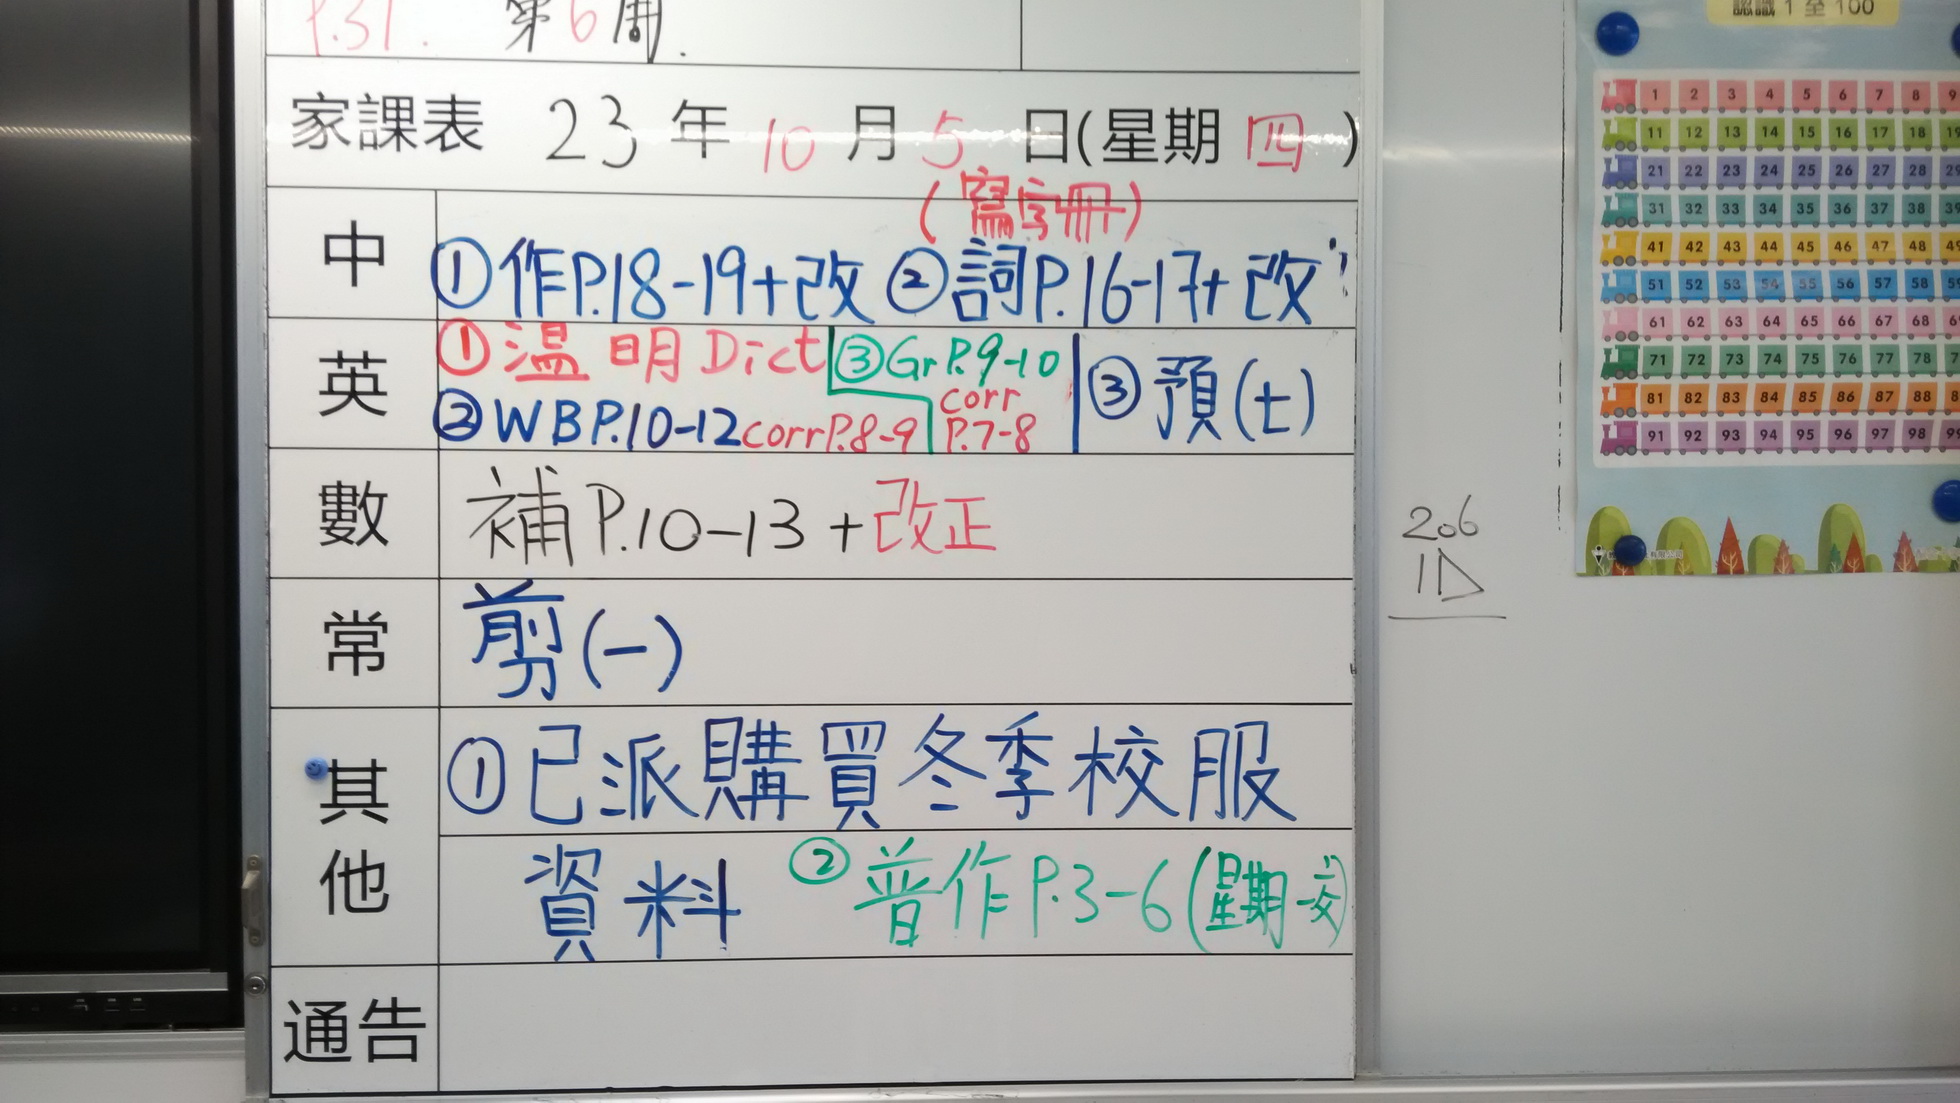 P.31. 第6周.
家課表 23年10月5日(星期四)
(寫字冊)
中 ①作P.18-19+改 ②詞P.16-17+改
英 ①溫 明 Dict ③Gr P.9-10 corr P.7-8 ③預(七)
②WB P.10-12 corr P.8-9
數 補 P.10-13 + 改正
常 剪(一)
其他 ①已派購買冬季校服
資料 ②普作P.3-6(星期一交)
通告
206
1D
認識 1 至 100
1 2 3 4 5 6 7 8 9
11 12 13 14 15 16 17 18 19
21 22 23 24 25 26 27 28 29
31 32 33 34 35 36 37 38 39
41 42 43 44 45 46 47 48 49
51 52 53 54 55 56 57 58 59
61 62 63 64 65 66 67 68 69
71 72 73 74 75 76 77 78
81 82 83 84 85 86 87 88
91 92 93 94 95 96 97 98 99